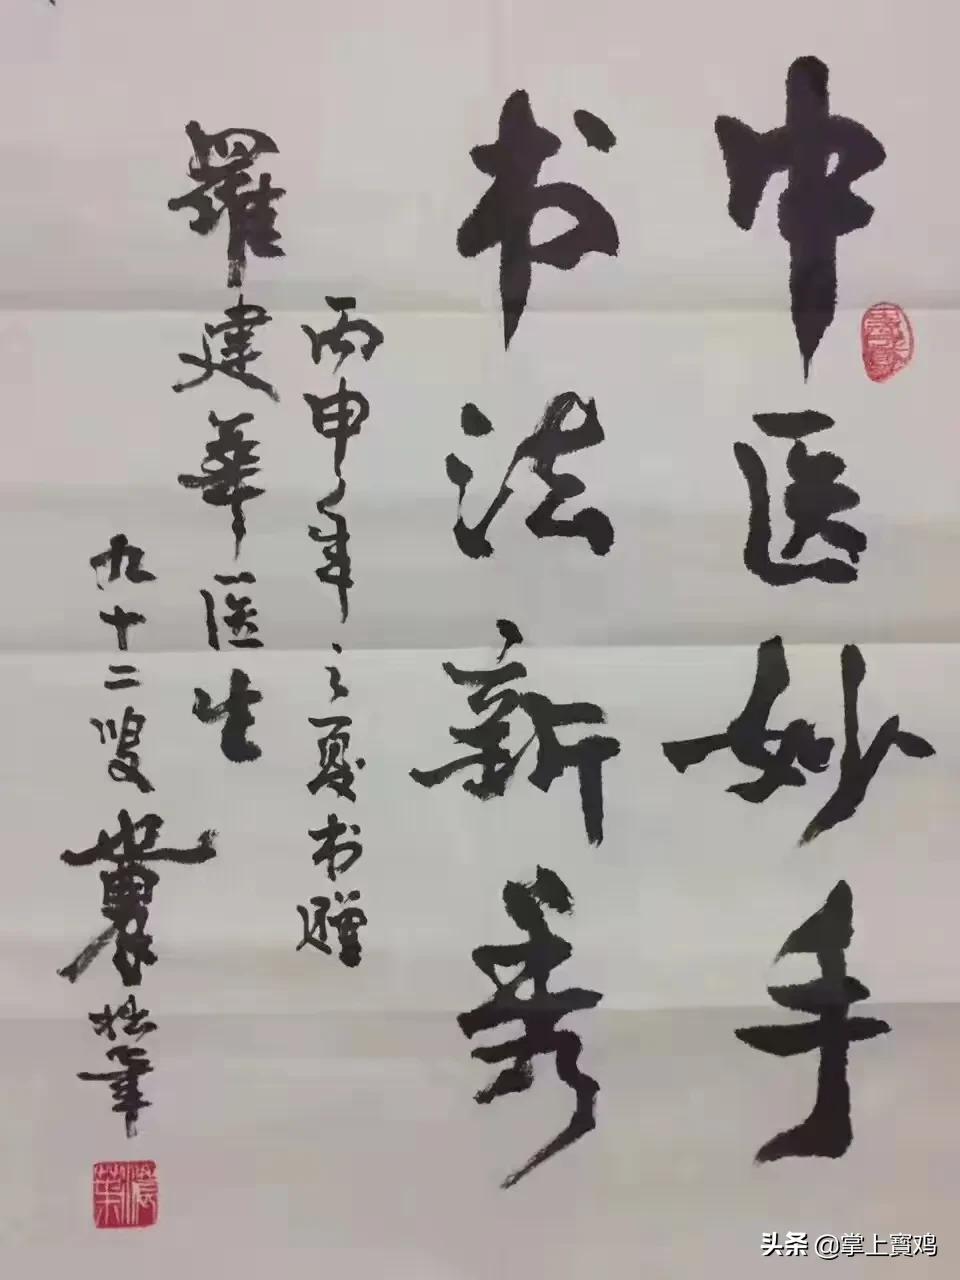 中医妙手
书法新秀
丙申年之夏书赠
羅建華医生
九十二叟拙筆
头条 @掌上寳鸡